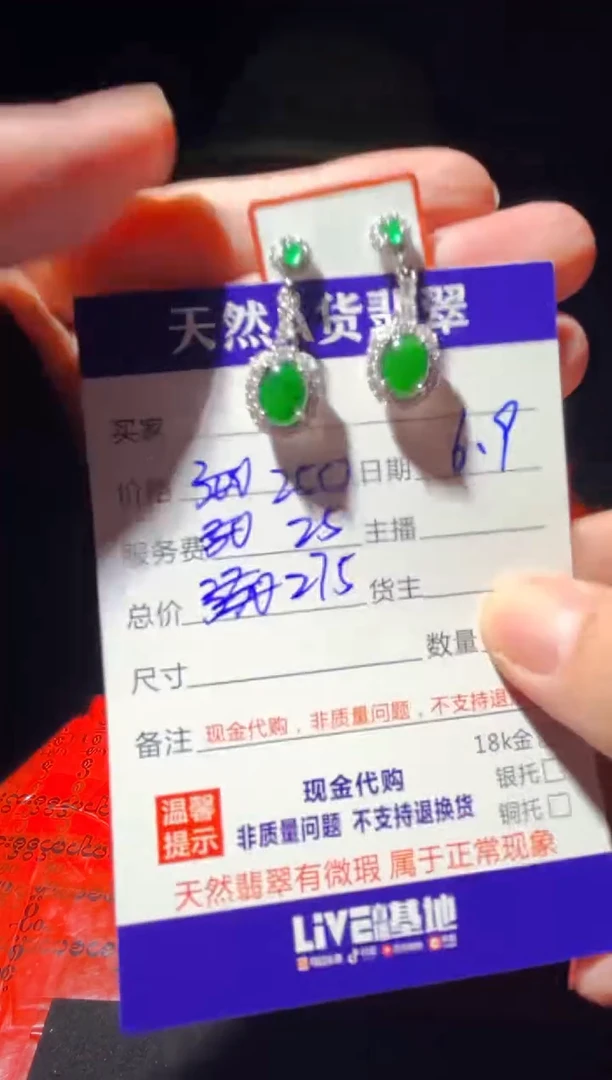 天然A货翡翠
买家
价格 300 250 日期 6.9
服务费 30 25 主播
总价 330 275 货主
尺寸 数量
备注 现金代购，非质量问题，不支持退
18k金
银托
铜托
温馨提示
现金代购
非质量问题 不支持退换货
天然翡翠有微瑕 属于正常现象
LiVE 基地